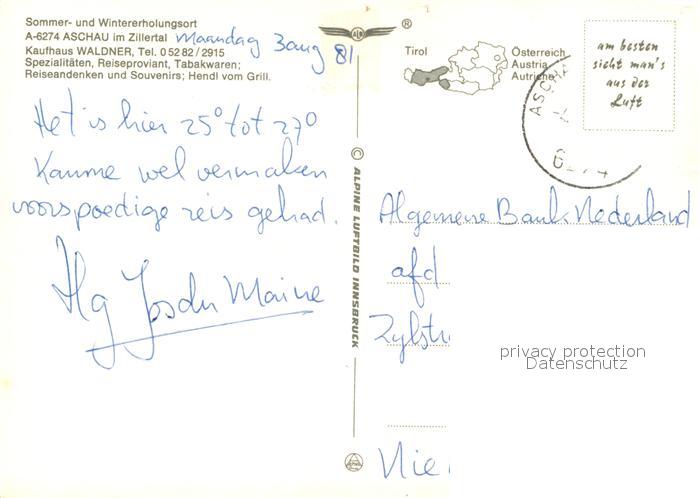 Sommer- und Wintererholungsort
A-6274 ASCHAU im Zillertal
Kaufhaus WALDNER, Tel. 0 52 82 / 2915
Spezialitäten, Reiseproviant, Tabakwaren;
Reiseandenken und Souvenirs; Hendl vom Grill.
Maandag 3 aug 81
Het is hier 25° tot 27°
wel vermaken
voorspoedige reis gehad.
©
ALPINE LUFTBILD INNSBRUCK
®
Tirol
Österreich
Austria
Autriche
am besten
sieht man's
aus der
Luft
ASCHA
Algemene Bank Nederland
afd
Zylstr
Nie
privacy protection
Datenschutz